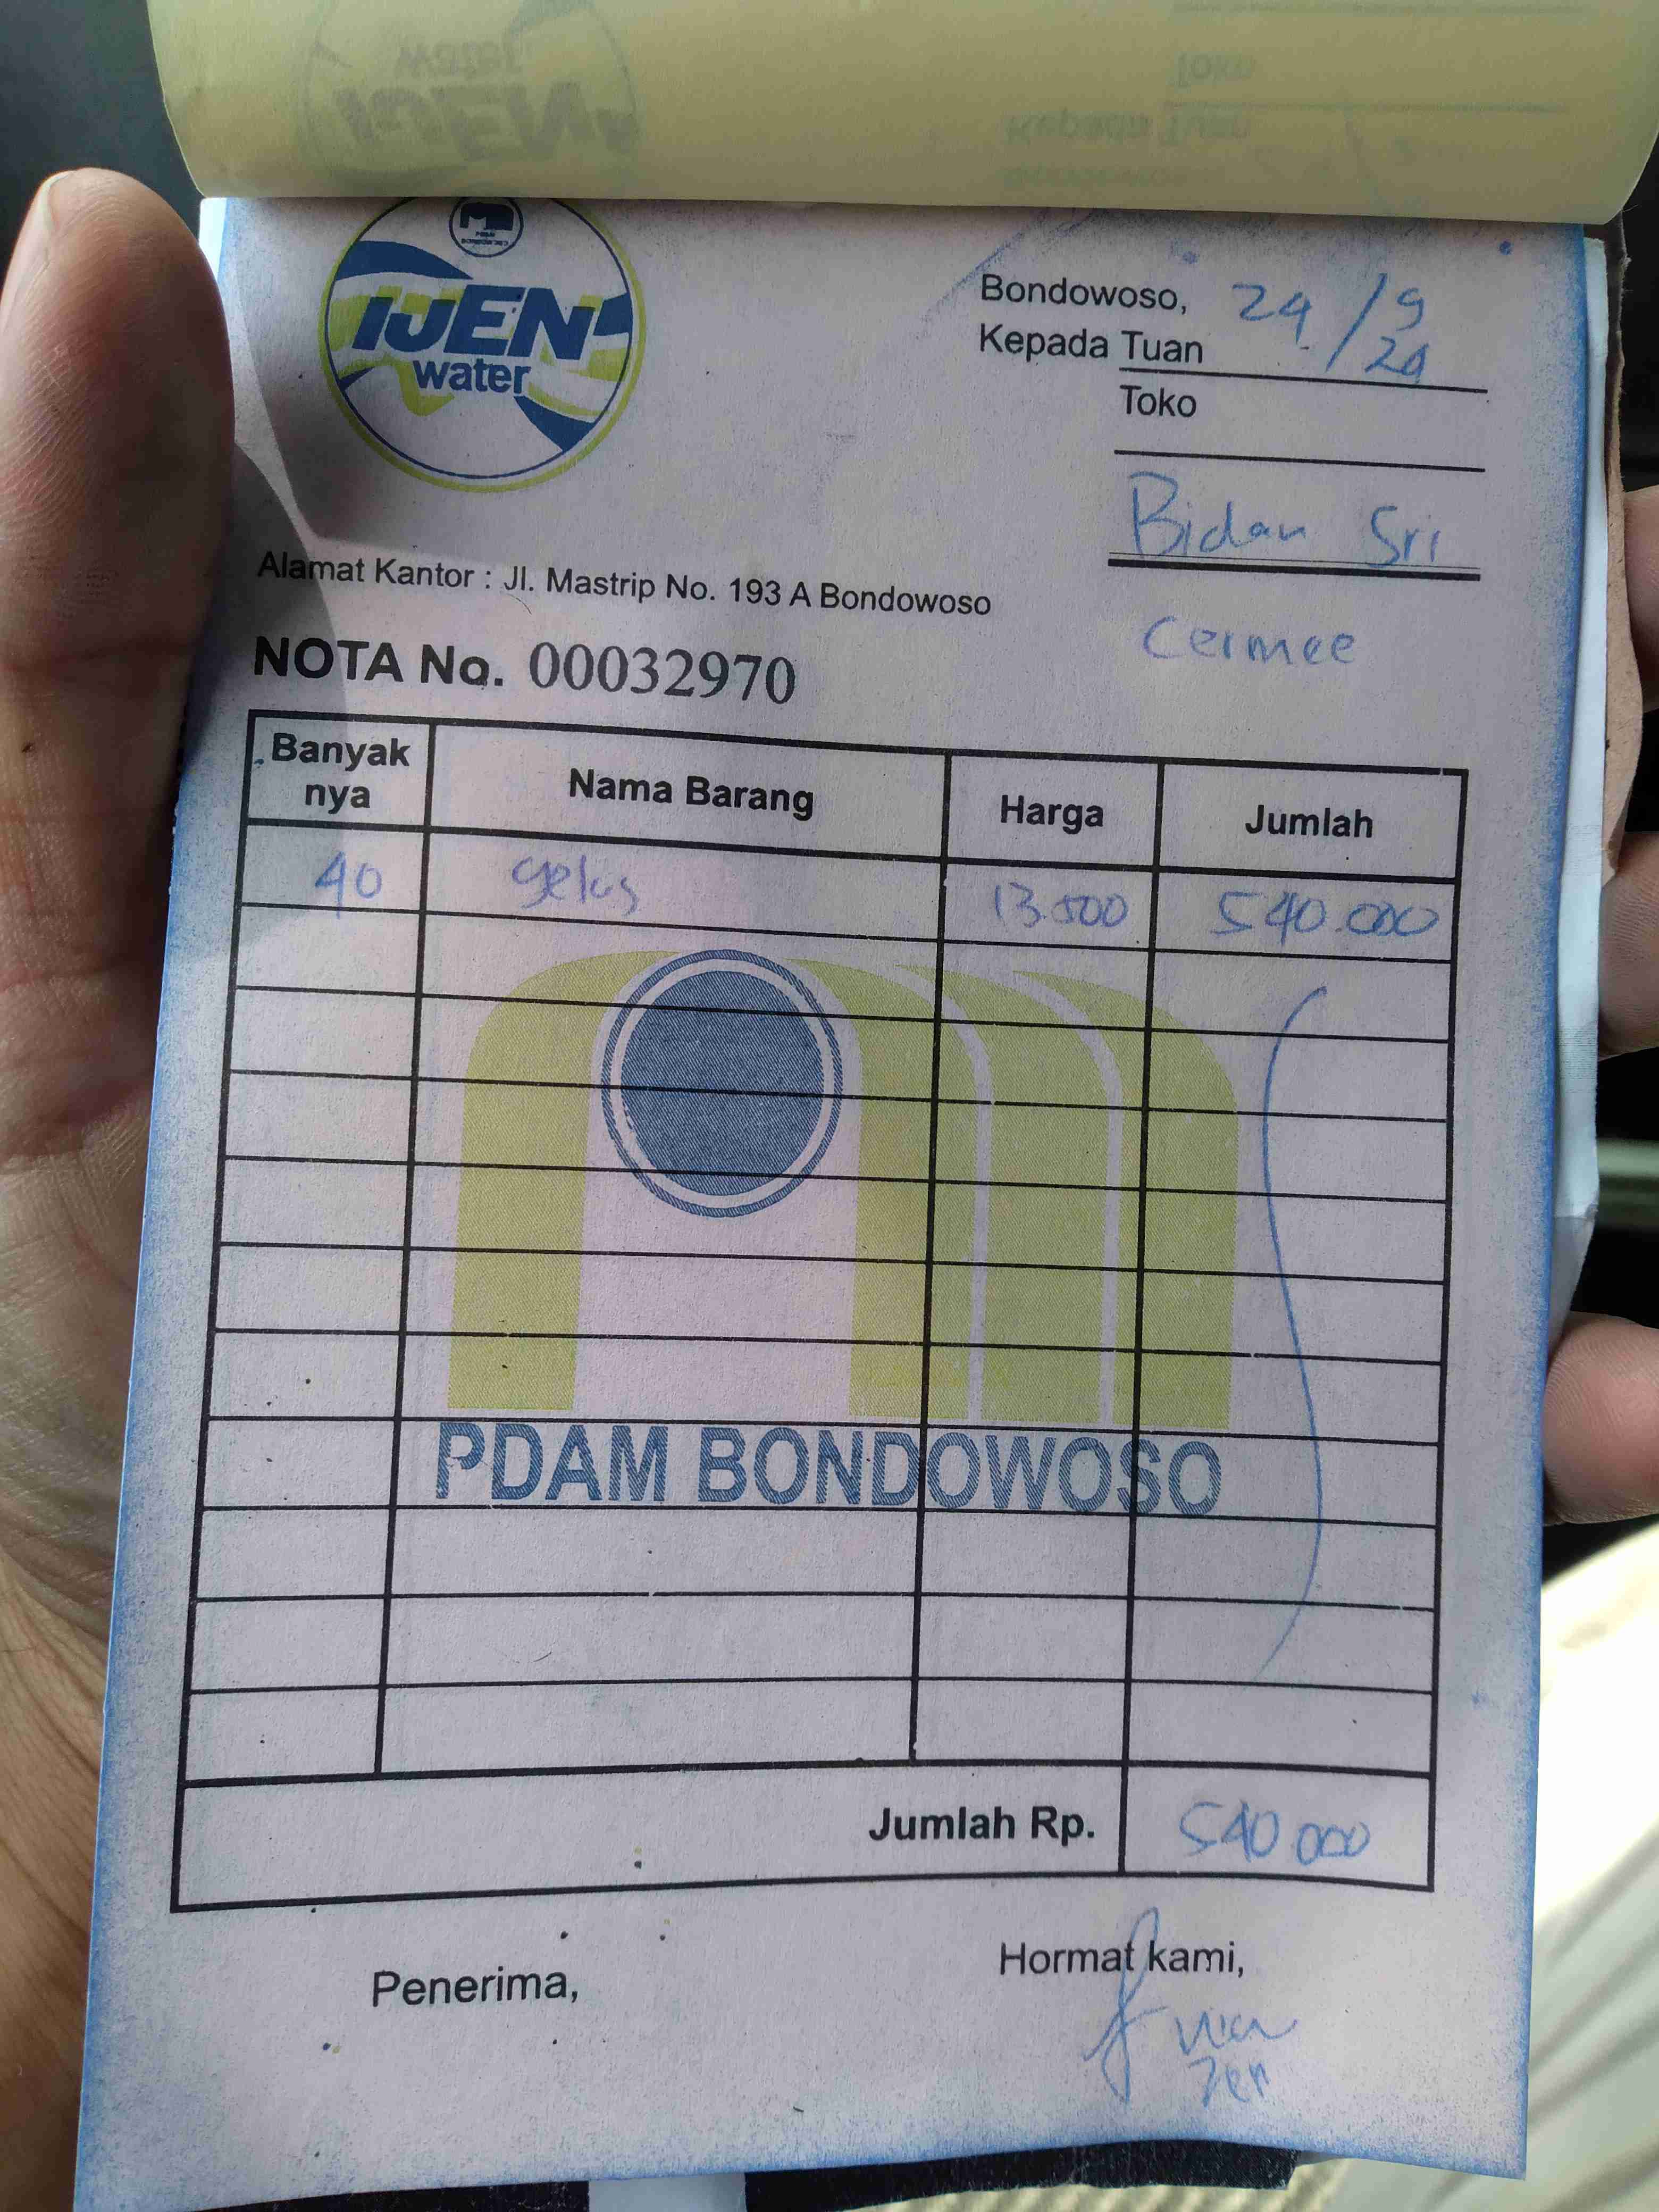 IJEN
water
Bondowoso, 24/9
24
Kepada Tuan
Toko
Bidan Sri
Cermee
Alamat Kantor : Jl. Mastrip No. 193 A Bondowoso
NOTA No. 00032970
Banyak nya Nama Barang Harga Jumlah
40 gelas 13.500 540.000
PDAM BONDOWOSO
Jumlah Rp. 540.000
Penerima,
Hormat kami,